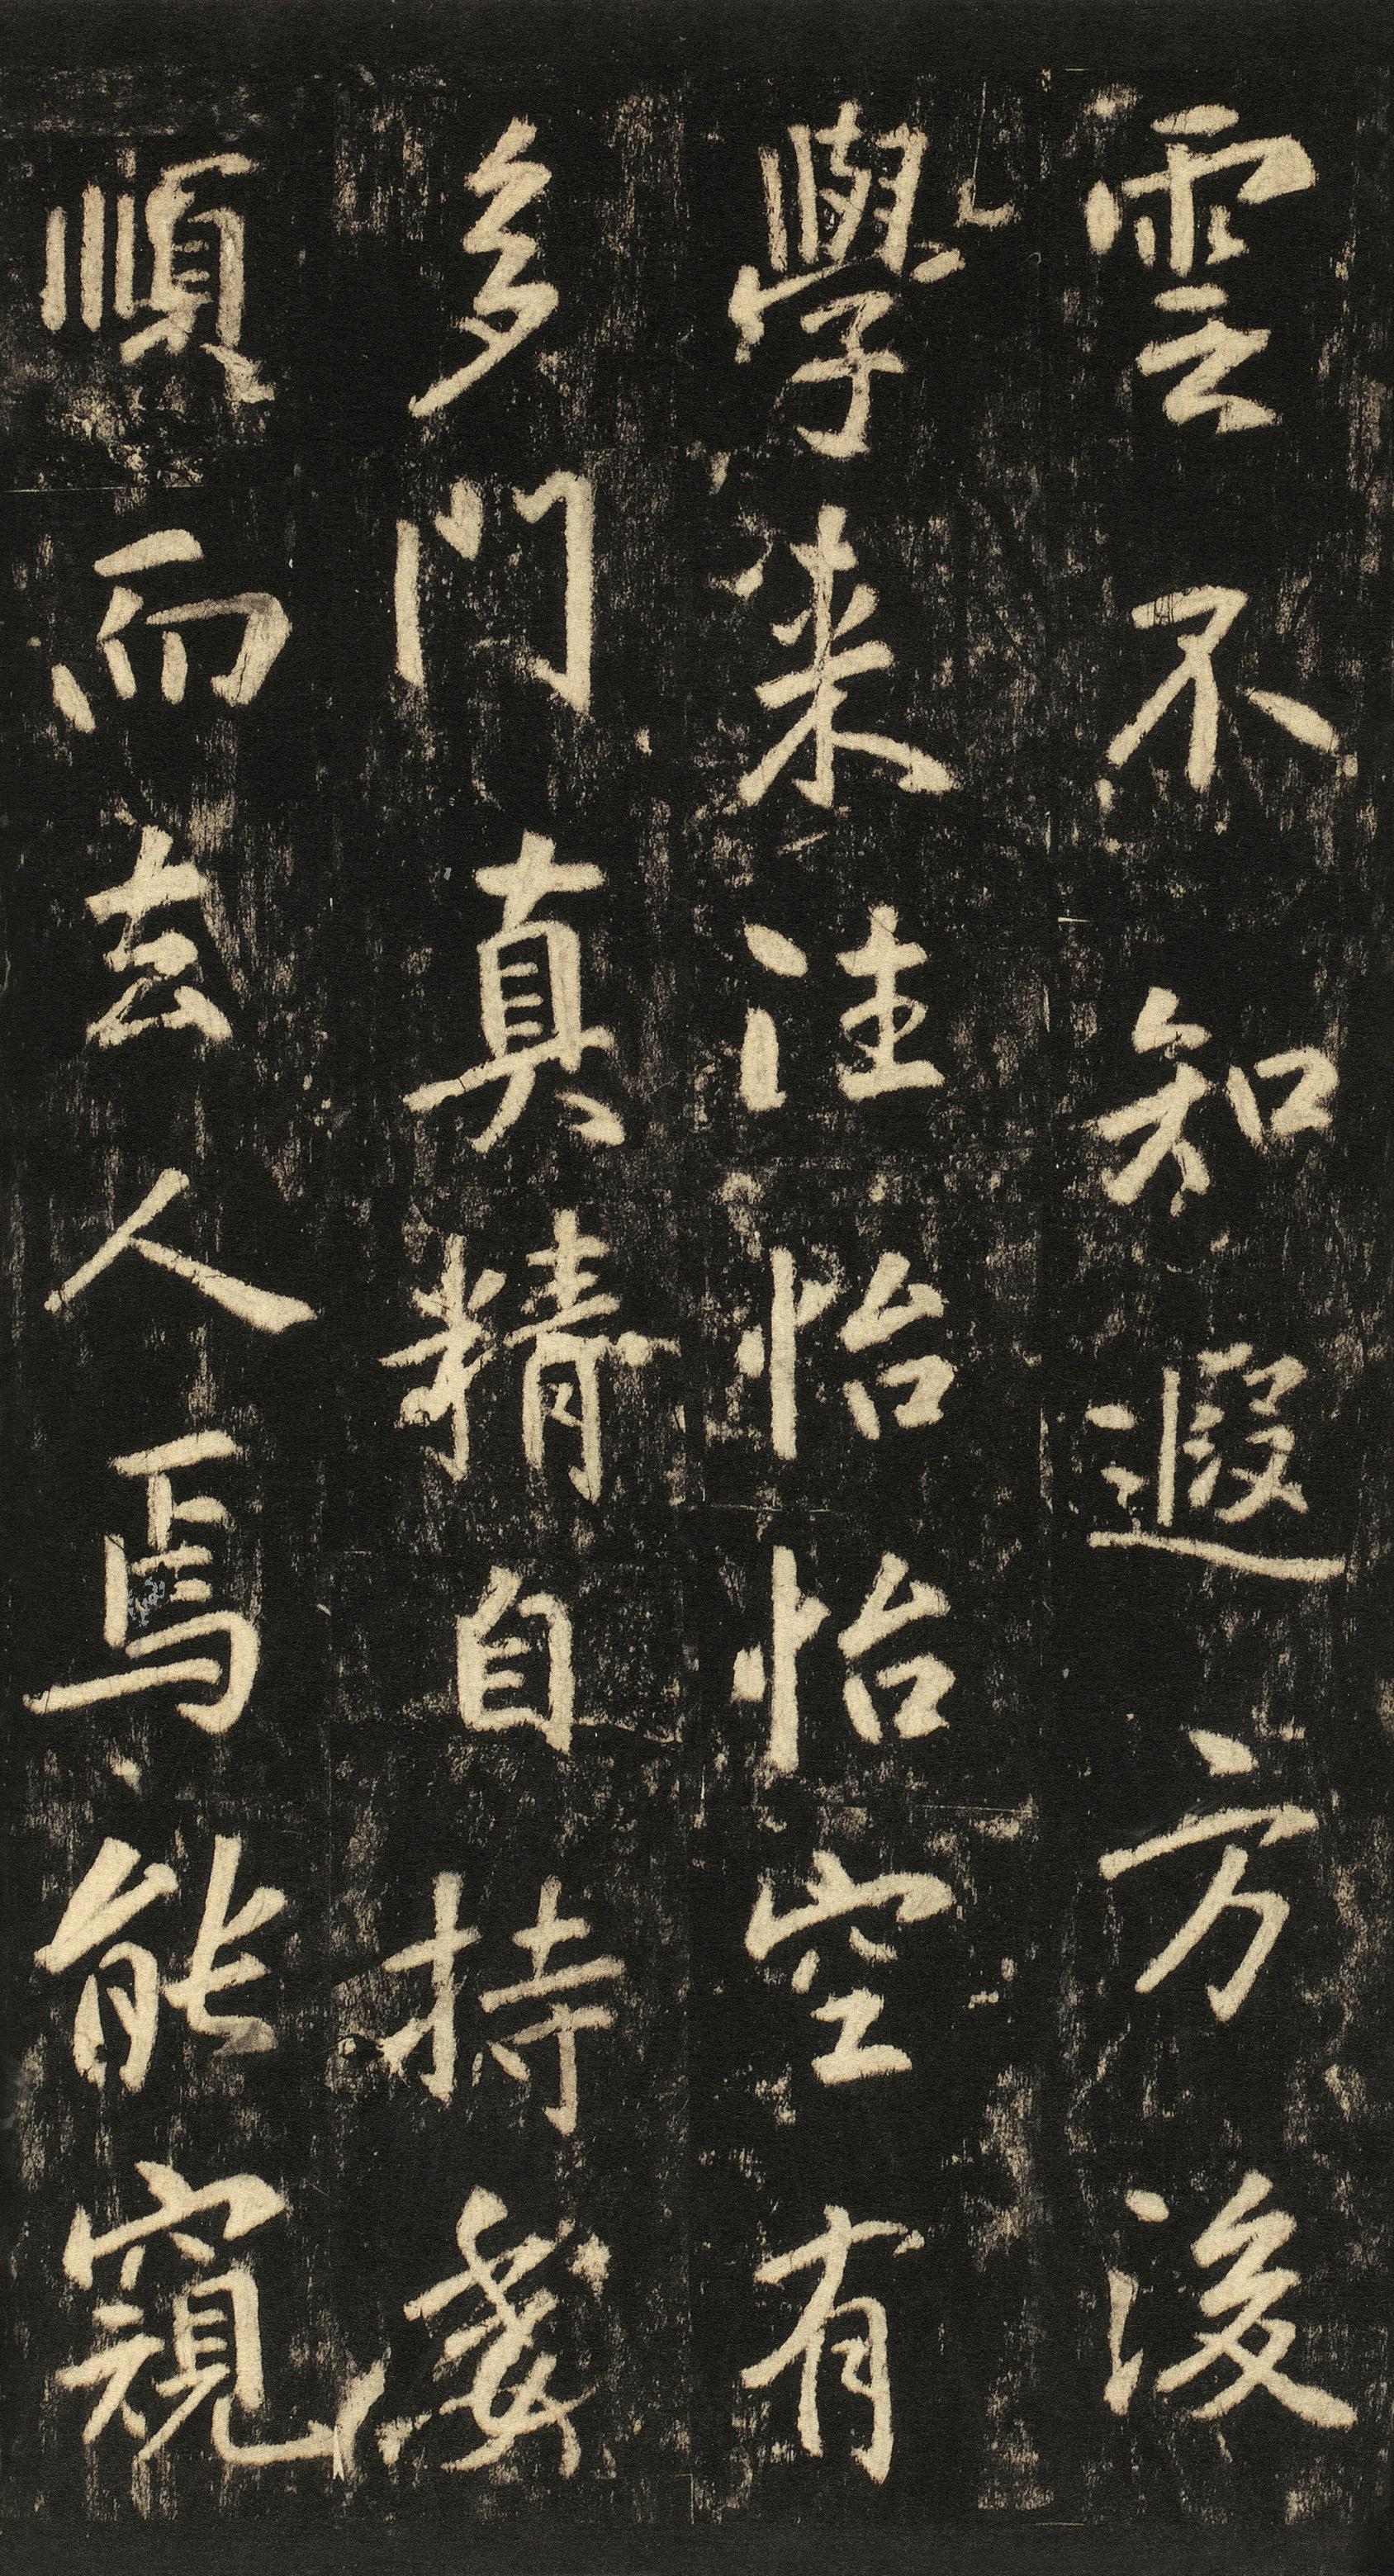 雲不知遐方後
學来往怡怡空有
多門真精自持委
順而去人焉能窺